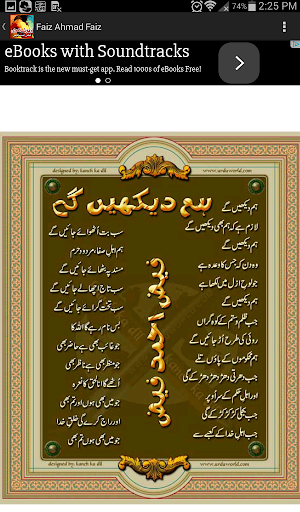 2:25 PM
Faiz Ahmad Faiz
eBooks with Soundtracks
Booktrack is the new must-get app. Read 1000s of eBooks Free!
designed by: kanch ka dil
www.urduworld.com
ہم دیکھیں گے
فیض احمد فیض
ہم دیکھیں گے
لازم ہے کہ ہم بھی دیکھیں گے
ہم دیکھیں گے
وہ دن کہ جس کا وعدہ ہے
جو لوح ازل میں لکھا ہے
ہم دیکھیں گے
جب ظلم و ستم کے کوہ گراں
روئی کی طرح اڑ جائیں گے
ہم محکوموں کے پاؤں تلے
جب دھرتی دھڑ دھڑ دھڑکے گی
اور اہل حکم کے سر اوپر
جب بجلی کڑ کڑ کڑکے گی
جب اہل خدا کے کعبے سے
سب بت اٹھوائے جائیں گے
ہم اہل صفا، مردود حرم
مسند پہ بٹھائے جائیں گے
سب تاج اچھالے جائیں گے
سب تخت گرائے جائیں گے
بس نام رہے گا اللہ کا
جو غائب بھی ہے حاضر بھی
جو منظر بھی ہے ناظر بھی
اٹھے گا انا الحق کا نعرہ
جو میں بھی ہوں اور تم بھی
اور راج کرے گی خلق خدا
جو میں بھی ہوں تم بھی
designed by: kanch ka dil
www.urduworld.com